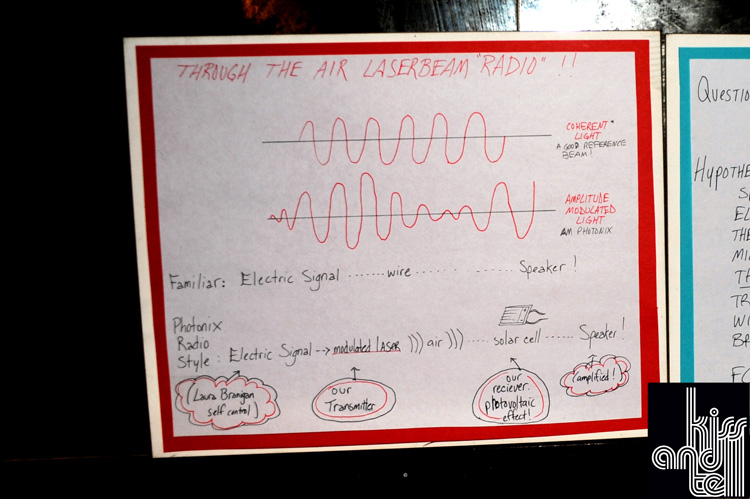 THROUGH THE AIR LASERBEAM "RADIO" !!
COHERENT
LIGHT
A GOOD REFERENCE
BEAM!
AMPLITUDE
MODULATED
LIGHT
AM PHOTONIX
Familiar: Electric Signal ....... wire ..... ....... Speaker !
Photonix
Radio
Style : Electric Signal --> modulated LASER ))) air ))) ..... solar cell ...... Speaker!
(Laura Branigan
self control)
our
Transmitter
our
reciever.
photovoltaic
effect!
(amplified!)
Questio
Hypothe
S
EL
THE
MI
TA
TR
WI
BR
FO
kiss
and
tell